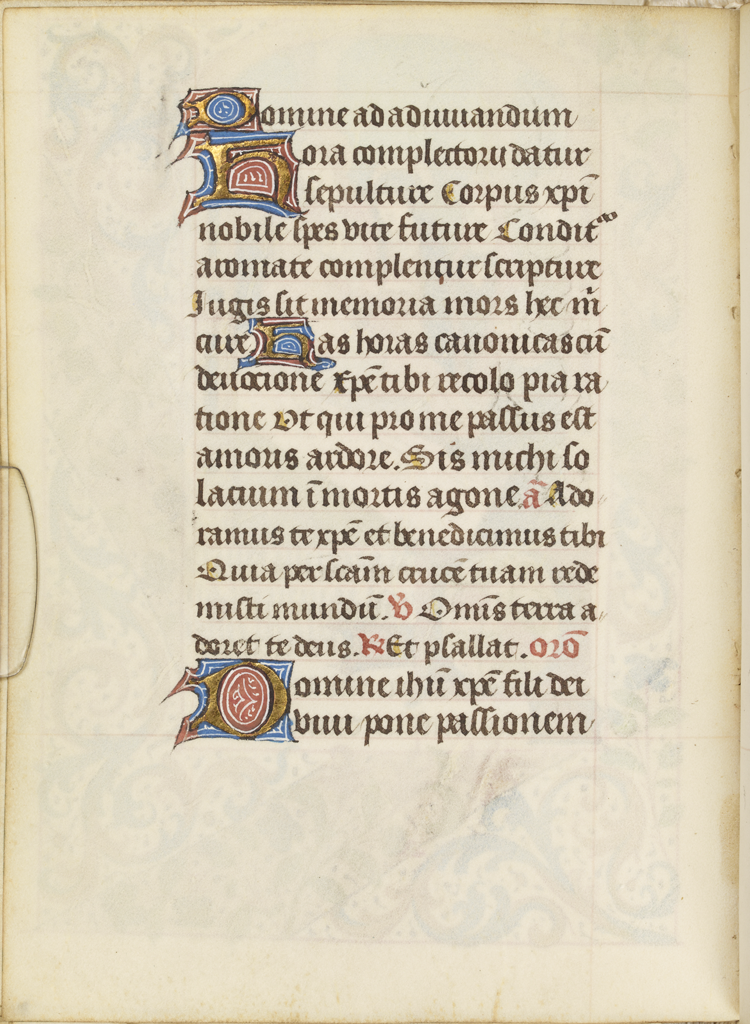 Domine ad adiuuandum
Hora complectorii datur
sepulture Corpus xpī
nobile spes vite future Condit̄
aromate complentur scripture
Iugis sit memoria mors hec m̄
cure Has horas canonicas cū
deuocione xpē tibi recolo pia ra
tione Ut qui pro me passus est
amoris ardore. Sis michi so
lacium ī mortis agone. añ Ado
ramus te xpē et benedicimus tibi
Quia per scām crucē tuam rede
misti mundū. V Omīs terra a
doret te deus. R Et psallat. orō
Domine ihū xpē fili dei
viui pone passionem